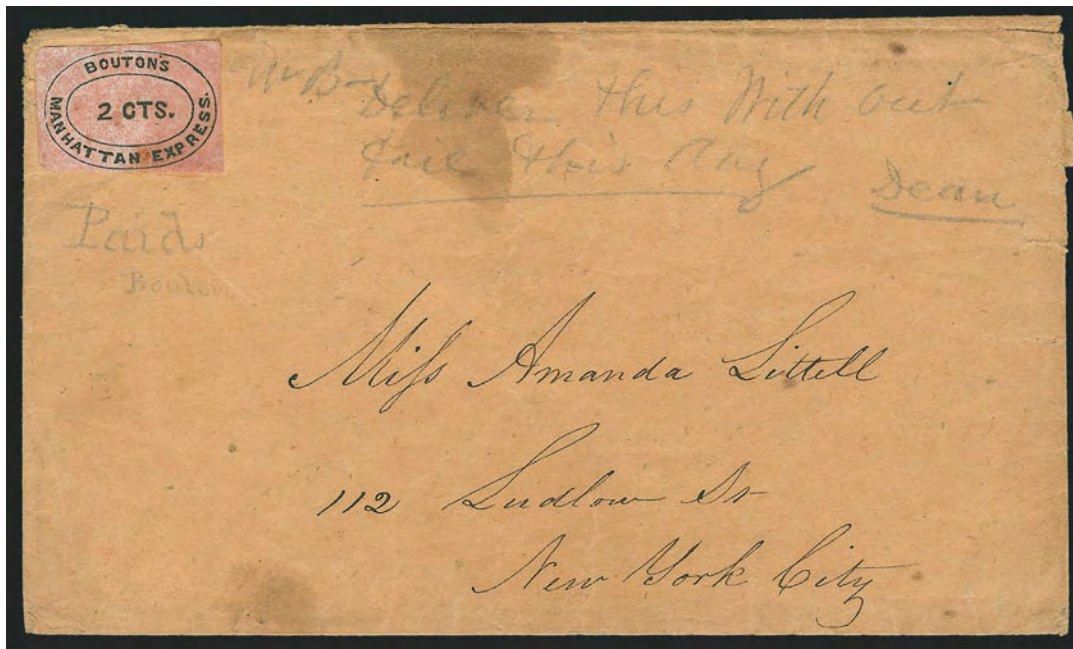 BOUTON'S
2 CTS.
MANHATTAN EXPRESS.
Mr B
Deliver this With out
fail this day
Dean
Paid
Bouton
Miss Amanda Littell
112 Ludlow St
New York City